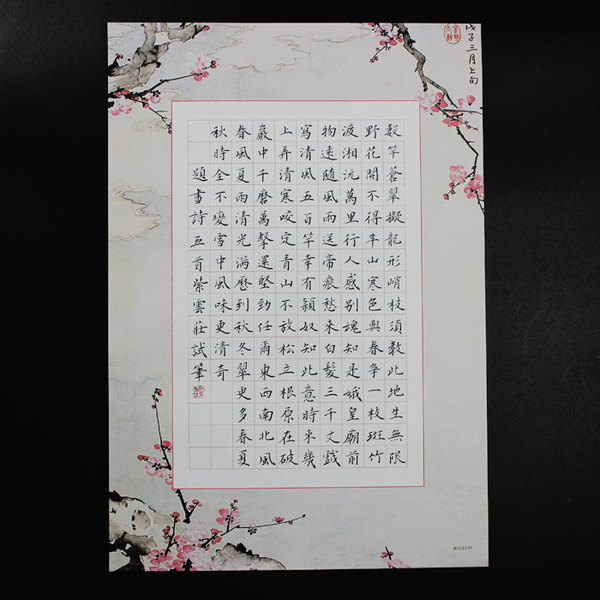 戊子三月上旬
數竿蒼翠擬龍形峭拔須教此地生無限
野花開不得半山寒色與春爭一枝斑竹
渡湘沅萬里行人感別魂知是娥皇廟前
物遠隨風雨送啼痕愁來白髮三千丈戲
寫清風五百竿幸有穎奴知此意時來幾
上弄清寒咬定青山不放松立根原在破
巖中千磨萬擊還堅勁任爾東西南北風
春風夏雨清光滿歷到秋冬翠更多春夏
秋時全不變雪中風味更清奇
題畫詩五首紫雲莊試筆